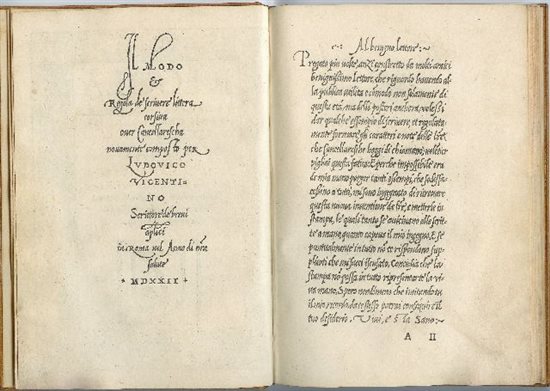 Il MODO
&
Regola de scrivere littera
corsiva
over Cancellarescha
novamente composto per
LVDOVICO
VICENTI=
NO
Scrittore de brevi
aplici
in Roma nel Anno di nra
salute
+ MDXXII +
Al benigno lettore :
Pregato piu volte, anzi constretto da molti amici
benignissimo Lettore, che riguardo havendo al
la publica utilita e cõmodo non solamente di
questa eta, ma delli posteri anchora, volessi
dar qualche essempio di scrivere, et regulata
mente formare gli caratteri e note delle lrẽ
che Cancellaresche hoggi di chiamano, volẽtier
pigliai questa fatica: E perche impossibile era
de mia mano porger tanti essempi, che sodisfa
cessino a tutti, mi sono ingegnato di ritrovare
questa nuova inventione de lrẽ, e metterle in
stampa, le quali tanto se avicinano alle scrit
te a mano quanto capeva il mio ingegno, E se
puntualmente in tutto nõ te rispondono, sup
plicoti che mi facci iscusato, Conciosia che la
stampa non possa in tutto ripresentarte la vi
va mano, Spero nondimeno che imitando tu
il mio ricordo, da te stesso potrai consequire il
tuo disiderio. Vivi, e sta Sano :
A II